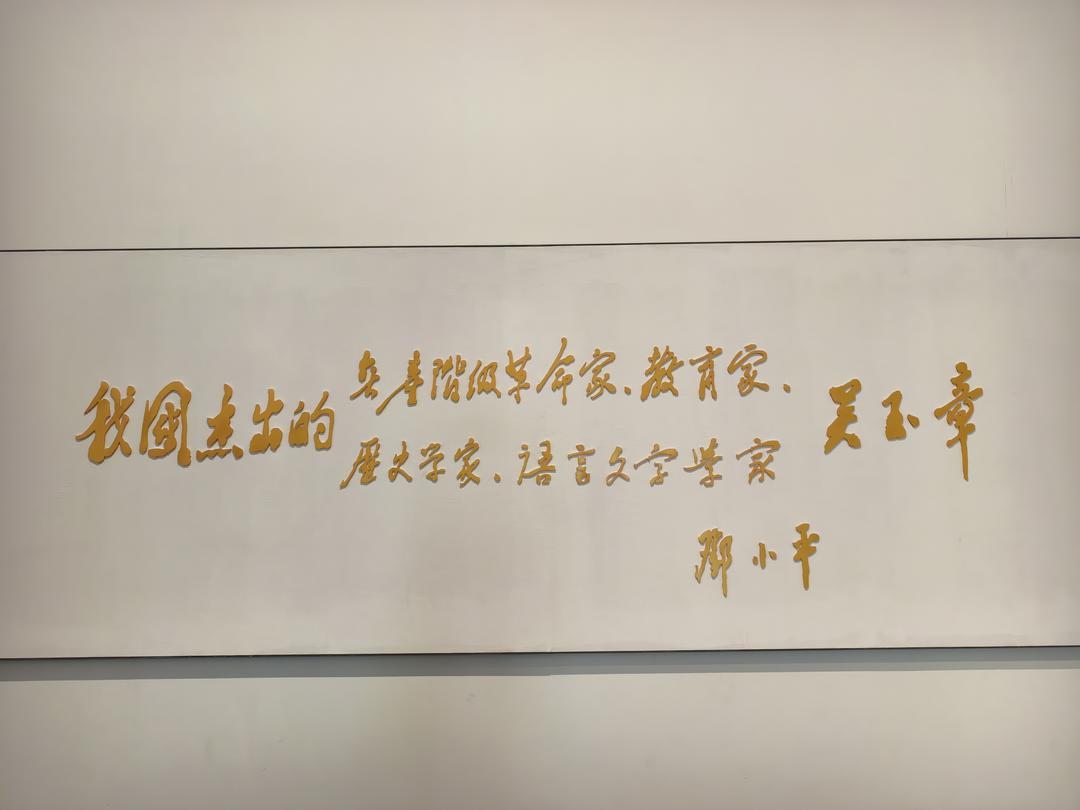 我國杰出的
无产階级革命家、教育家、
歷史学家、語言文字学家
吴玉章
鄧小平